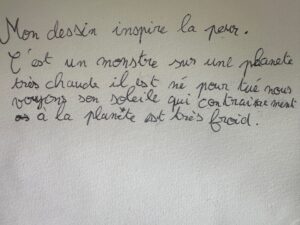 Mon dessin inspire la peur.
C'est un monstre sur une planete
très chaude il est né pour tué nous
voyons son soleile qui contrairement
os à la planête est très froid.